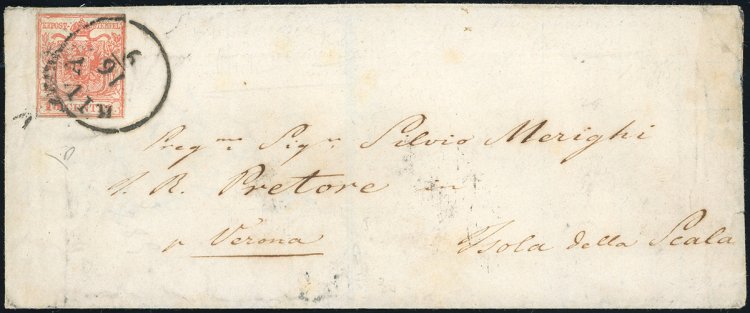 KKPOST-STEMPEL
RIVA
16
9
15 CENTES
Preg.mo Sig.r Silvio Merighi
I. R. Pretore in
p Verona Isola della Scala